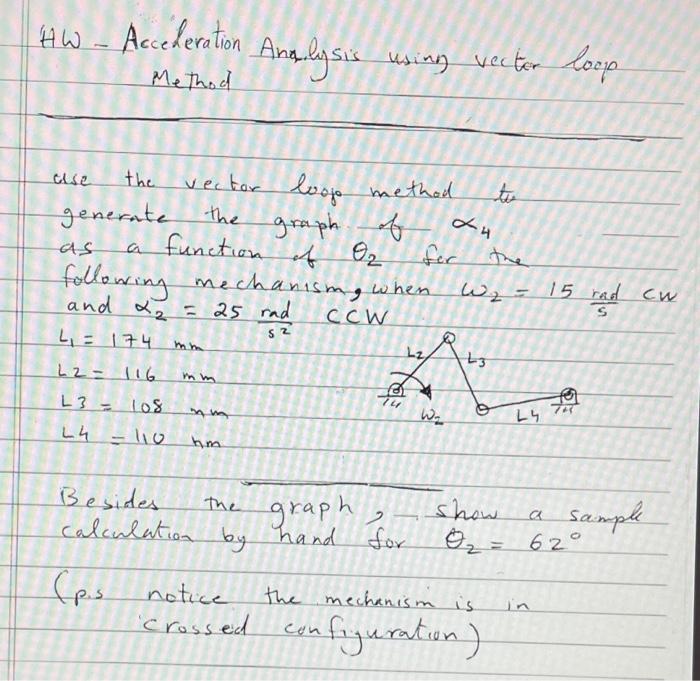 HW - Acceleration Analysis using vector loop
Method
use the vector loop method to
generate the graph of α4
as a function of θ2 for the
following mechanism, when ω2 = 15 rad/s CW
and α2 = 25 rad/s2 CCW
L1 = 174 mm
L2 = 116 mm
L3 = 108 mm
L4 = 110 mm
L2
L3
ω2
L4
Besides the graph, show a sample
calculation by hand for θ2 = 62°
(p.s notice the mechanism is in
crossed configuration)